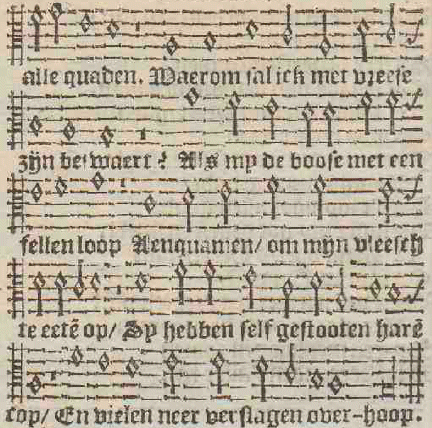 alle quaden. Waerom sal ick met vreese
zijn beswaert? Als my de boose met een
fellen loop Aenquamen/ om mijn vleesch
te eetē op/ Sy hebben self gestooten harē
cop/ En vielen neer verslagen over-hoop.